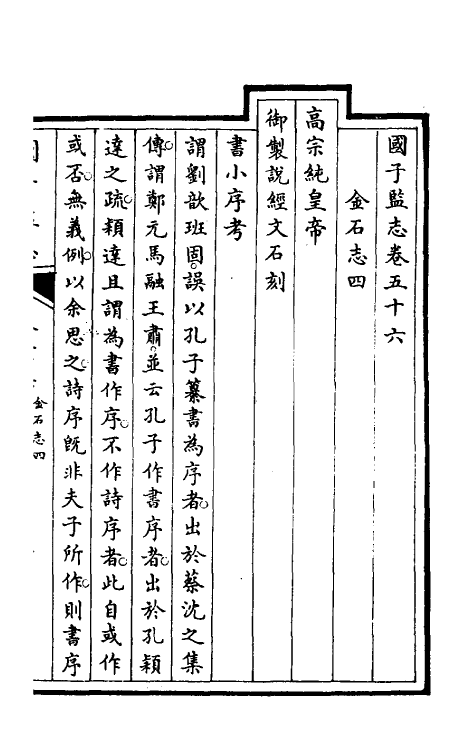 國子監志卷五十六
金石志四
高宗純皇帝
御製說經文石刻
書小序考
謂劉歆班固誤以孔子纂書為序者出於蔡沈之集
傳謂鄭元馬融王肅並云孔子作書序者出於孔穎
達之疏穎達且謂為書作序不作詩序者此自或作
或否無義例以余思之詩序既非夫子所作則書序
金石志四